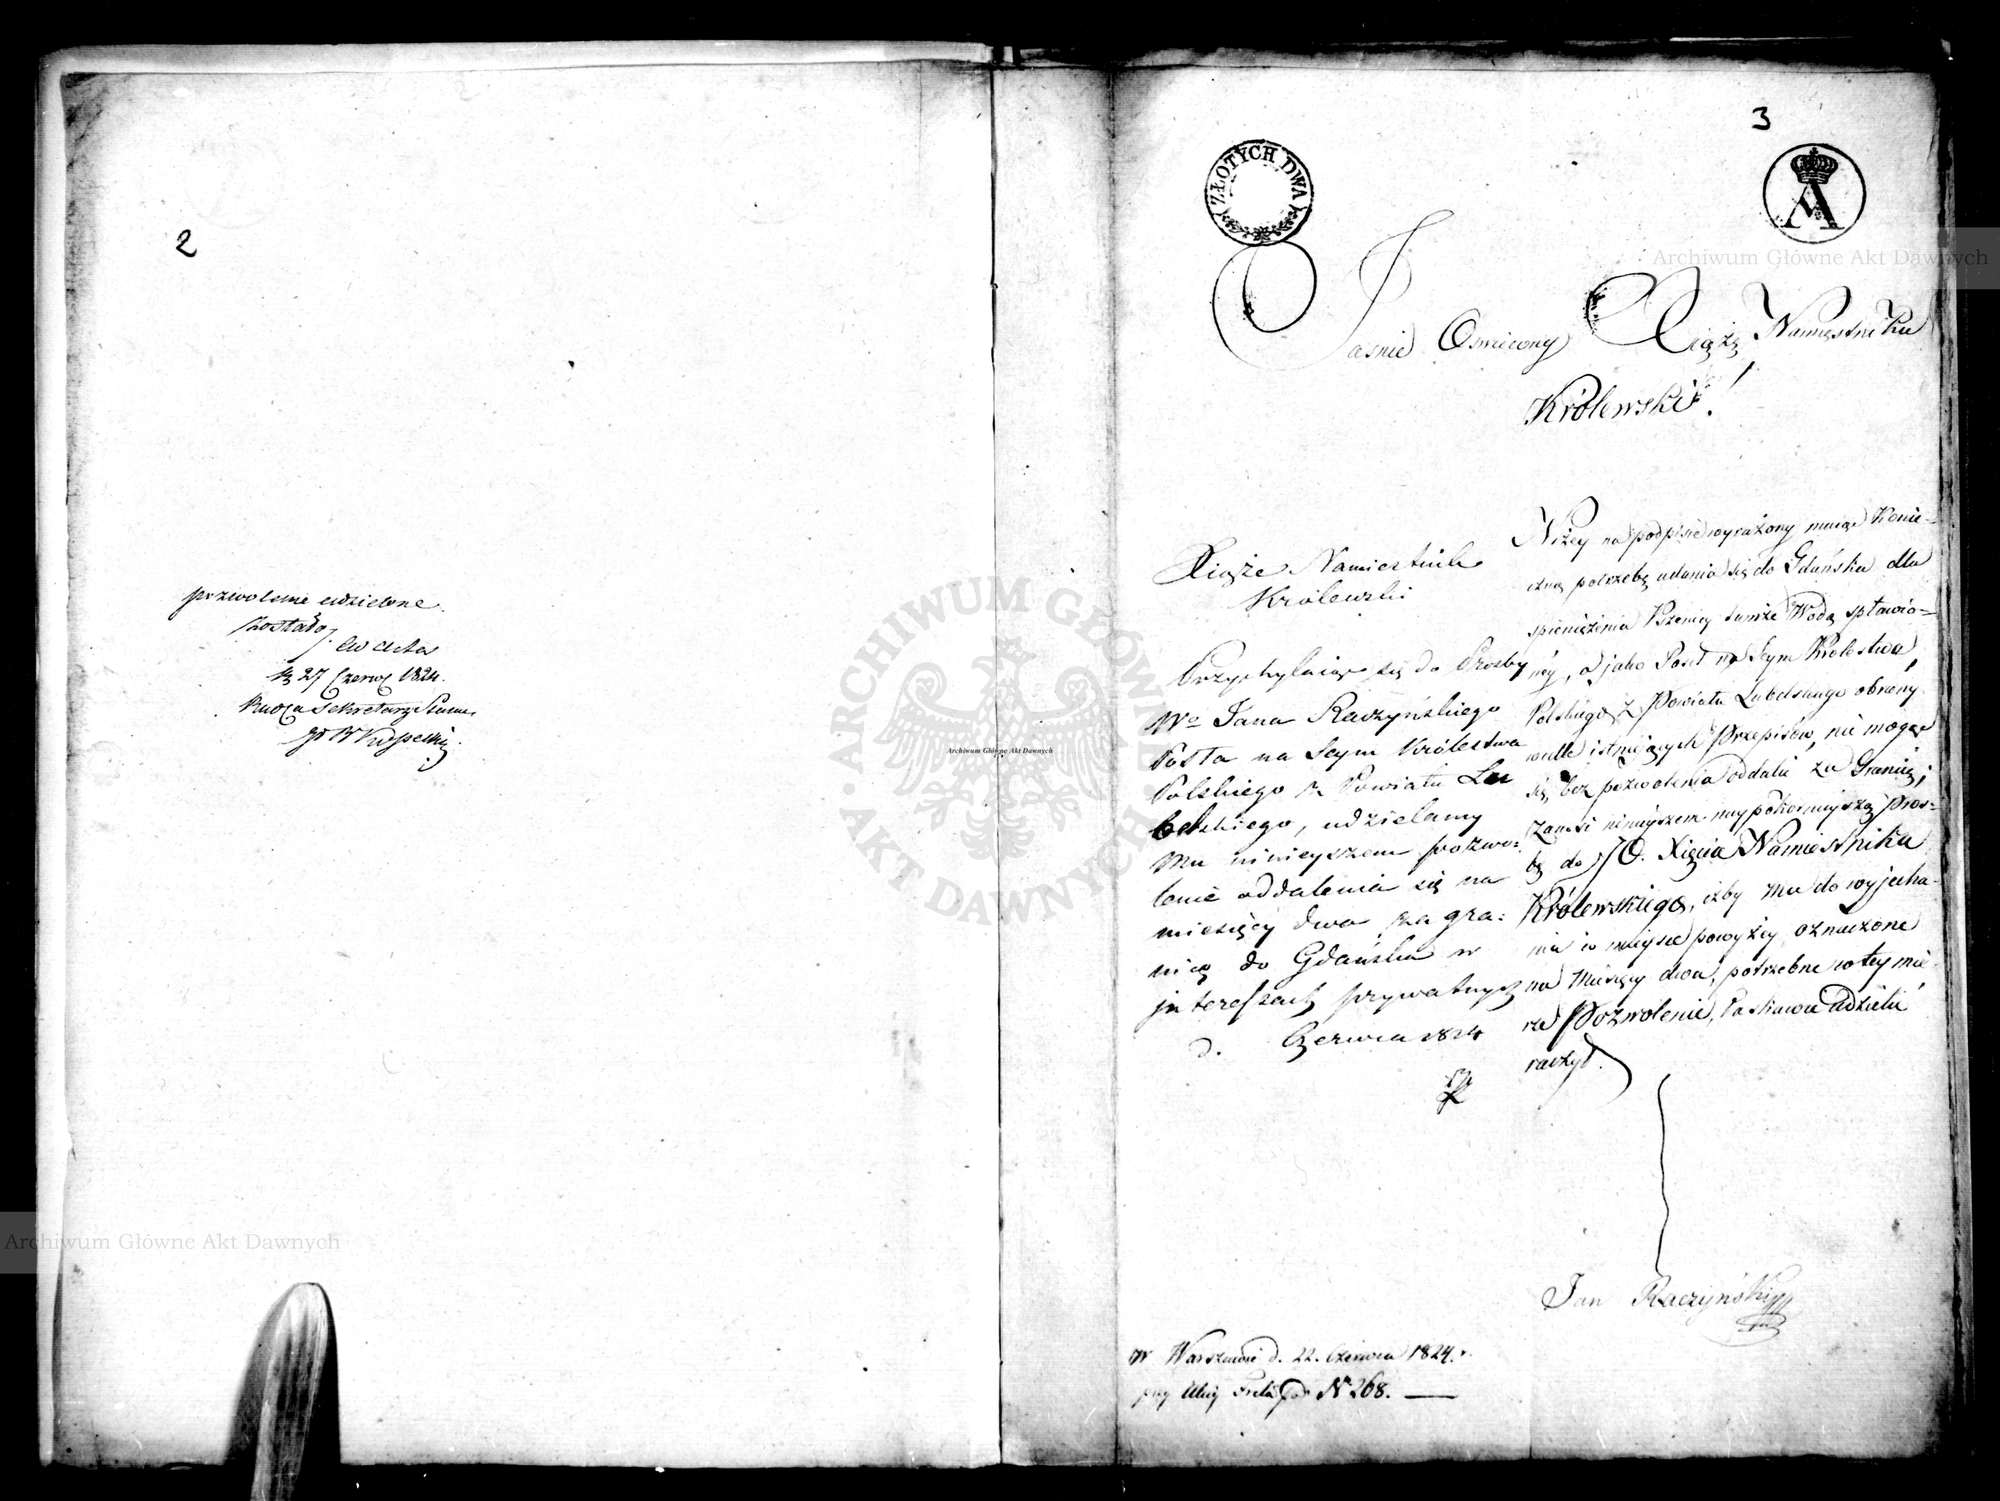 2
pozwolenie udzielone
zostało
ad acta
d 27 Czerw 1824.
Radca Sekretarz Stanu
3
ZŁOTYCH DWA
A
Jaśnie Oświecony Xiążę Namiestniku
Królewski!
Xiąże Namiestnik
Królewski
Przychylaiąc się do Prośby
Wo Jana Raczyńskiego
Posła na Seym Królestwa
Polskiego z Powiatu Lu
belskiego, udzielamy
Mu ninieyszem pozwo-
lenie oddalenia się na
miesięcy dwa za gra-
nicę do Gdańska w
interessach prywatnych
d. Czerwca 1824
Niżey na podpisie wyrażony maiąc konie-
czną potrzebę udania się do Gdańska dla
spieniężenia Pszenicy tamże Wodą spławio-
ney, a jako Poseł na Seym Królestwa
Polskiego z Powiatu Lubelskiego obrany
wedle istnieiących Przepisów, nie mogąc
się bez pozwolenia oddalić za Granicę;
Zanosi ninieyszem naypokornieyszą Proś-
bę do JO. Xięcia Namiestnika
Królewskiego, iżby mu do wyjecha-
nia w mieysce powyżey oznaczone
na Miesięcy dwa, potrzebne w tey mie-
rze Pozwolenie, łaskawie udzielić
raczył.
Jan Raczyński
w Warszawie d. 22. Czerwca 1824. r.
przy Ulicy Freta pod N 268.
Archiwum Główne Akt Dawnych
Archiwum Główne Akt Dawnych
Archiwum Główne Akt Dawnych
ARCHIWUM GŁÓWNE AKT DAWNYCH